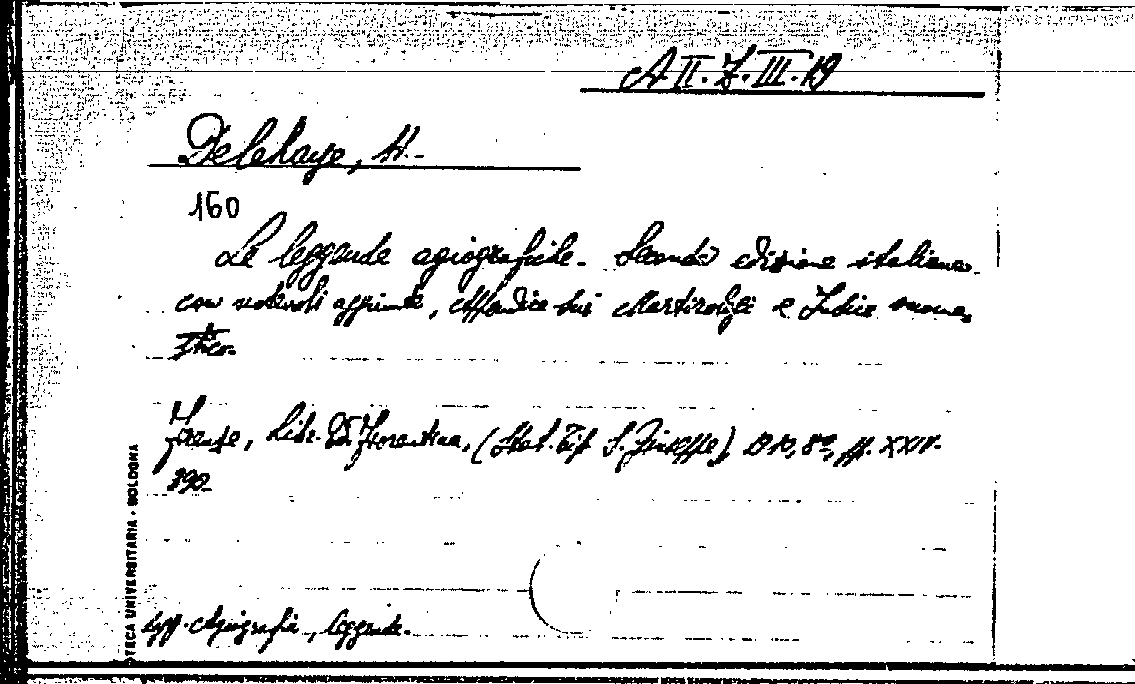 A II. Z. III. 19
Delehaye, H.-
160
Le leggende agiografiche. Seconda edizione italiana
con notevoli aggiunte, Appendice sui Martirologi e Indice onoma,
stico.
Firenze, Libr. Ed. Fiorentina, (Stab. Tip. S. Giuseppe), 1910, 8º, pp. XXIV-
390.
Agiografia, leggende.
OTECA UNIVERSITARIA - BOLOGNA